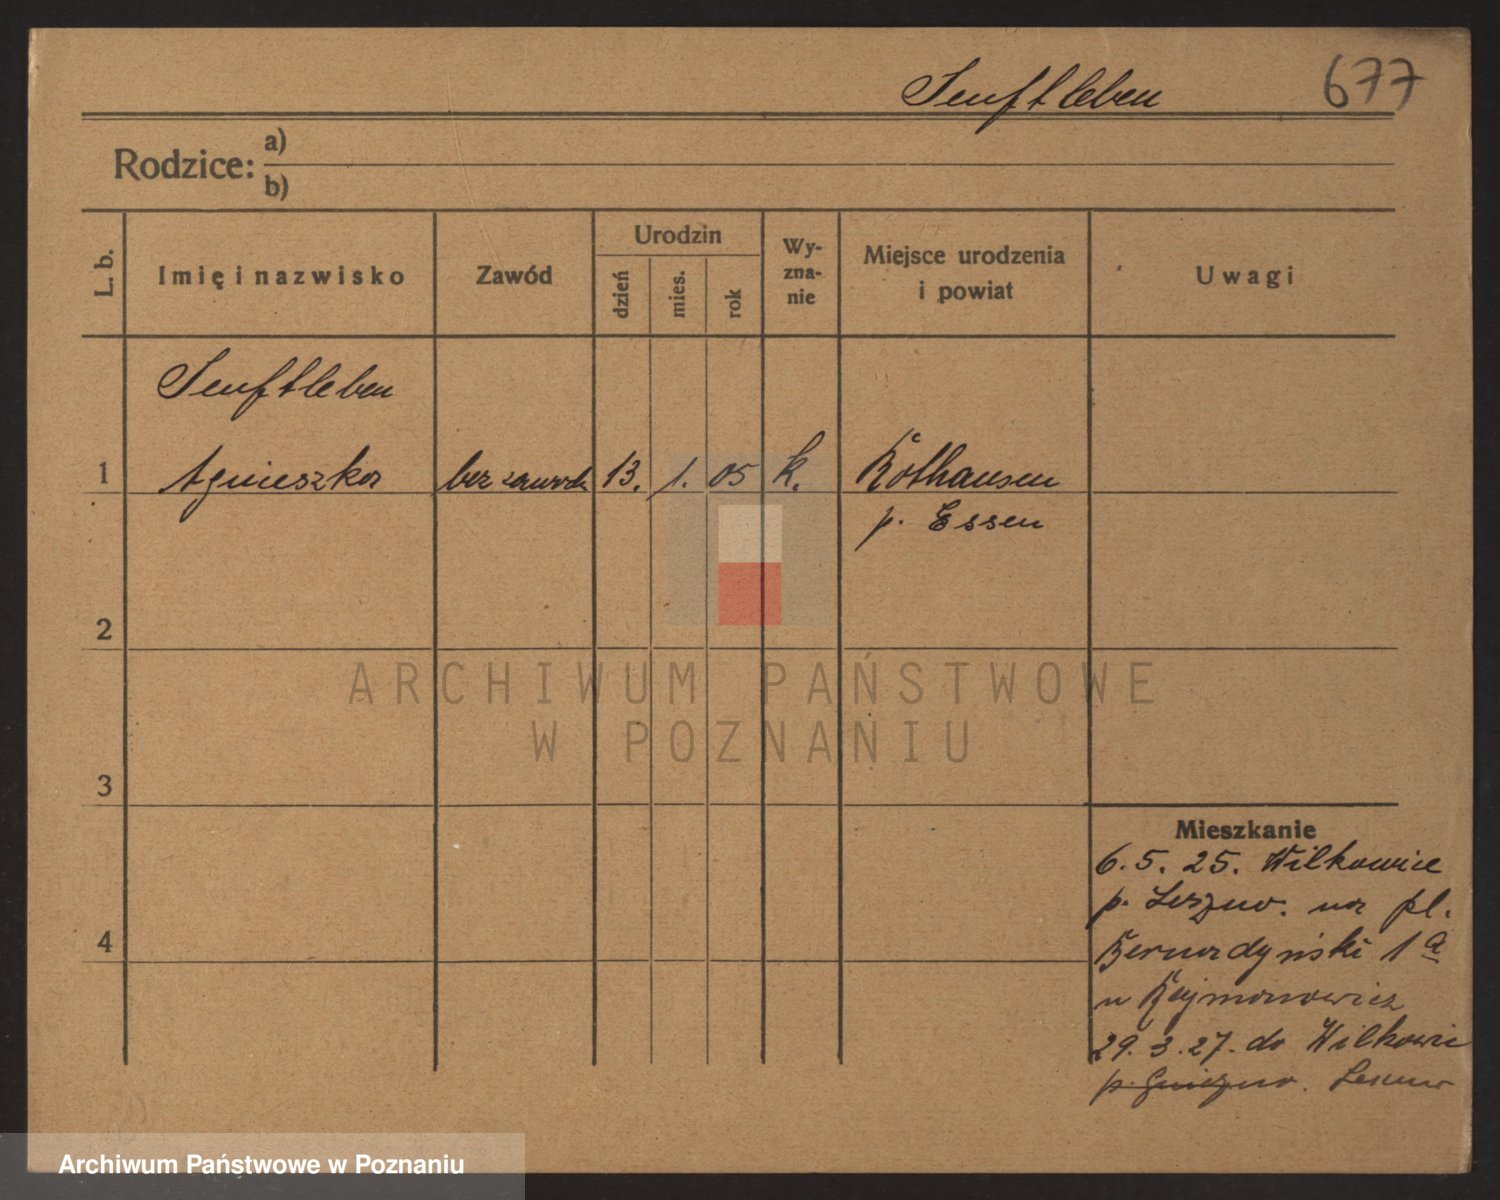 Senftleben 677
Rodzice: a)
b)
L. b. Imię i nazwisko Zawód Urodzin dzień mies. rok Wy-zna-nie Miejsce urodzenia i powiat Uwagi
Senftleben
1 Agnieszka bez zawodu 13. 1. 05 k. Rothausen
p. Essen
2
3
4
Mieszkanie
6. 5. 25. Wilkowice
p. Leszno. na pl.
Bernardyński 1a
u
29. 3. 27. do Wilkowic
p. Gniezno. Leszno
ARCHIWUM PAŃSTWOWE
W POZNANIU
Archiwum Państwowe w Poznaniu